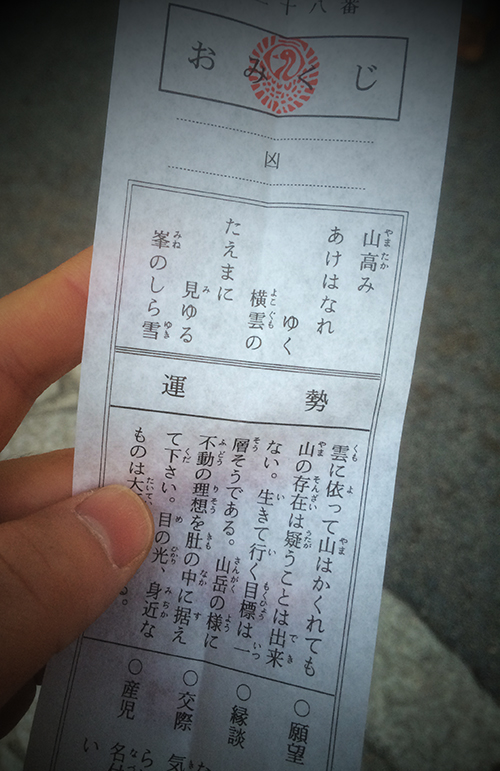 十八番
おみくじ
凶
山高み
あけはなれ
ゆく
横雲の
たえまに
見ゆる
峯のしら雪
運勢
雲に依って山はかくれても
山の存在は疑うことは出来
ない。生きて行く目標は一
層そうである。山岳の様に
不動の理想を肚の中に据え
て下さい。目の光、身近な
ものは大 る。
○願望
○縁談
○交際 気
○産児